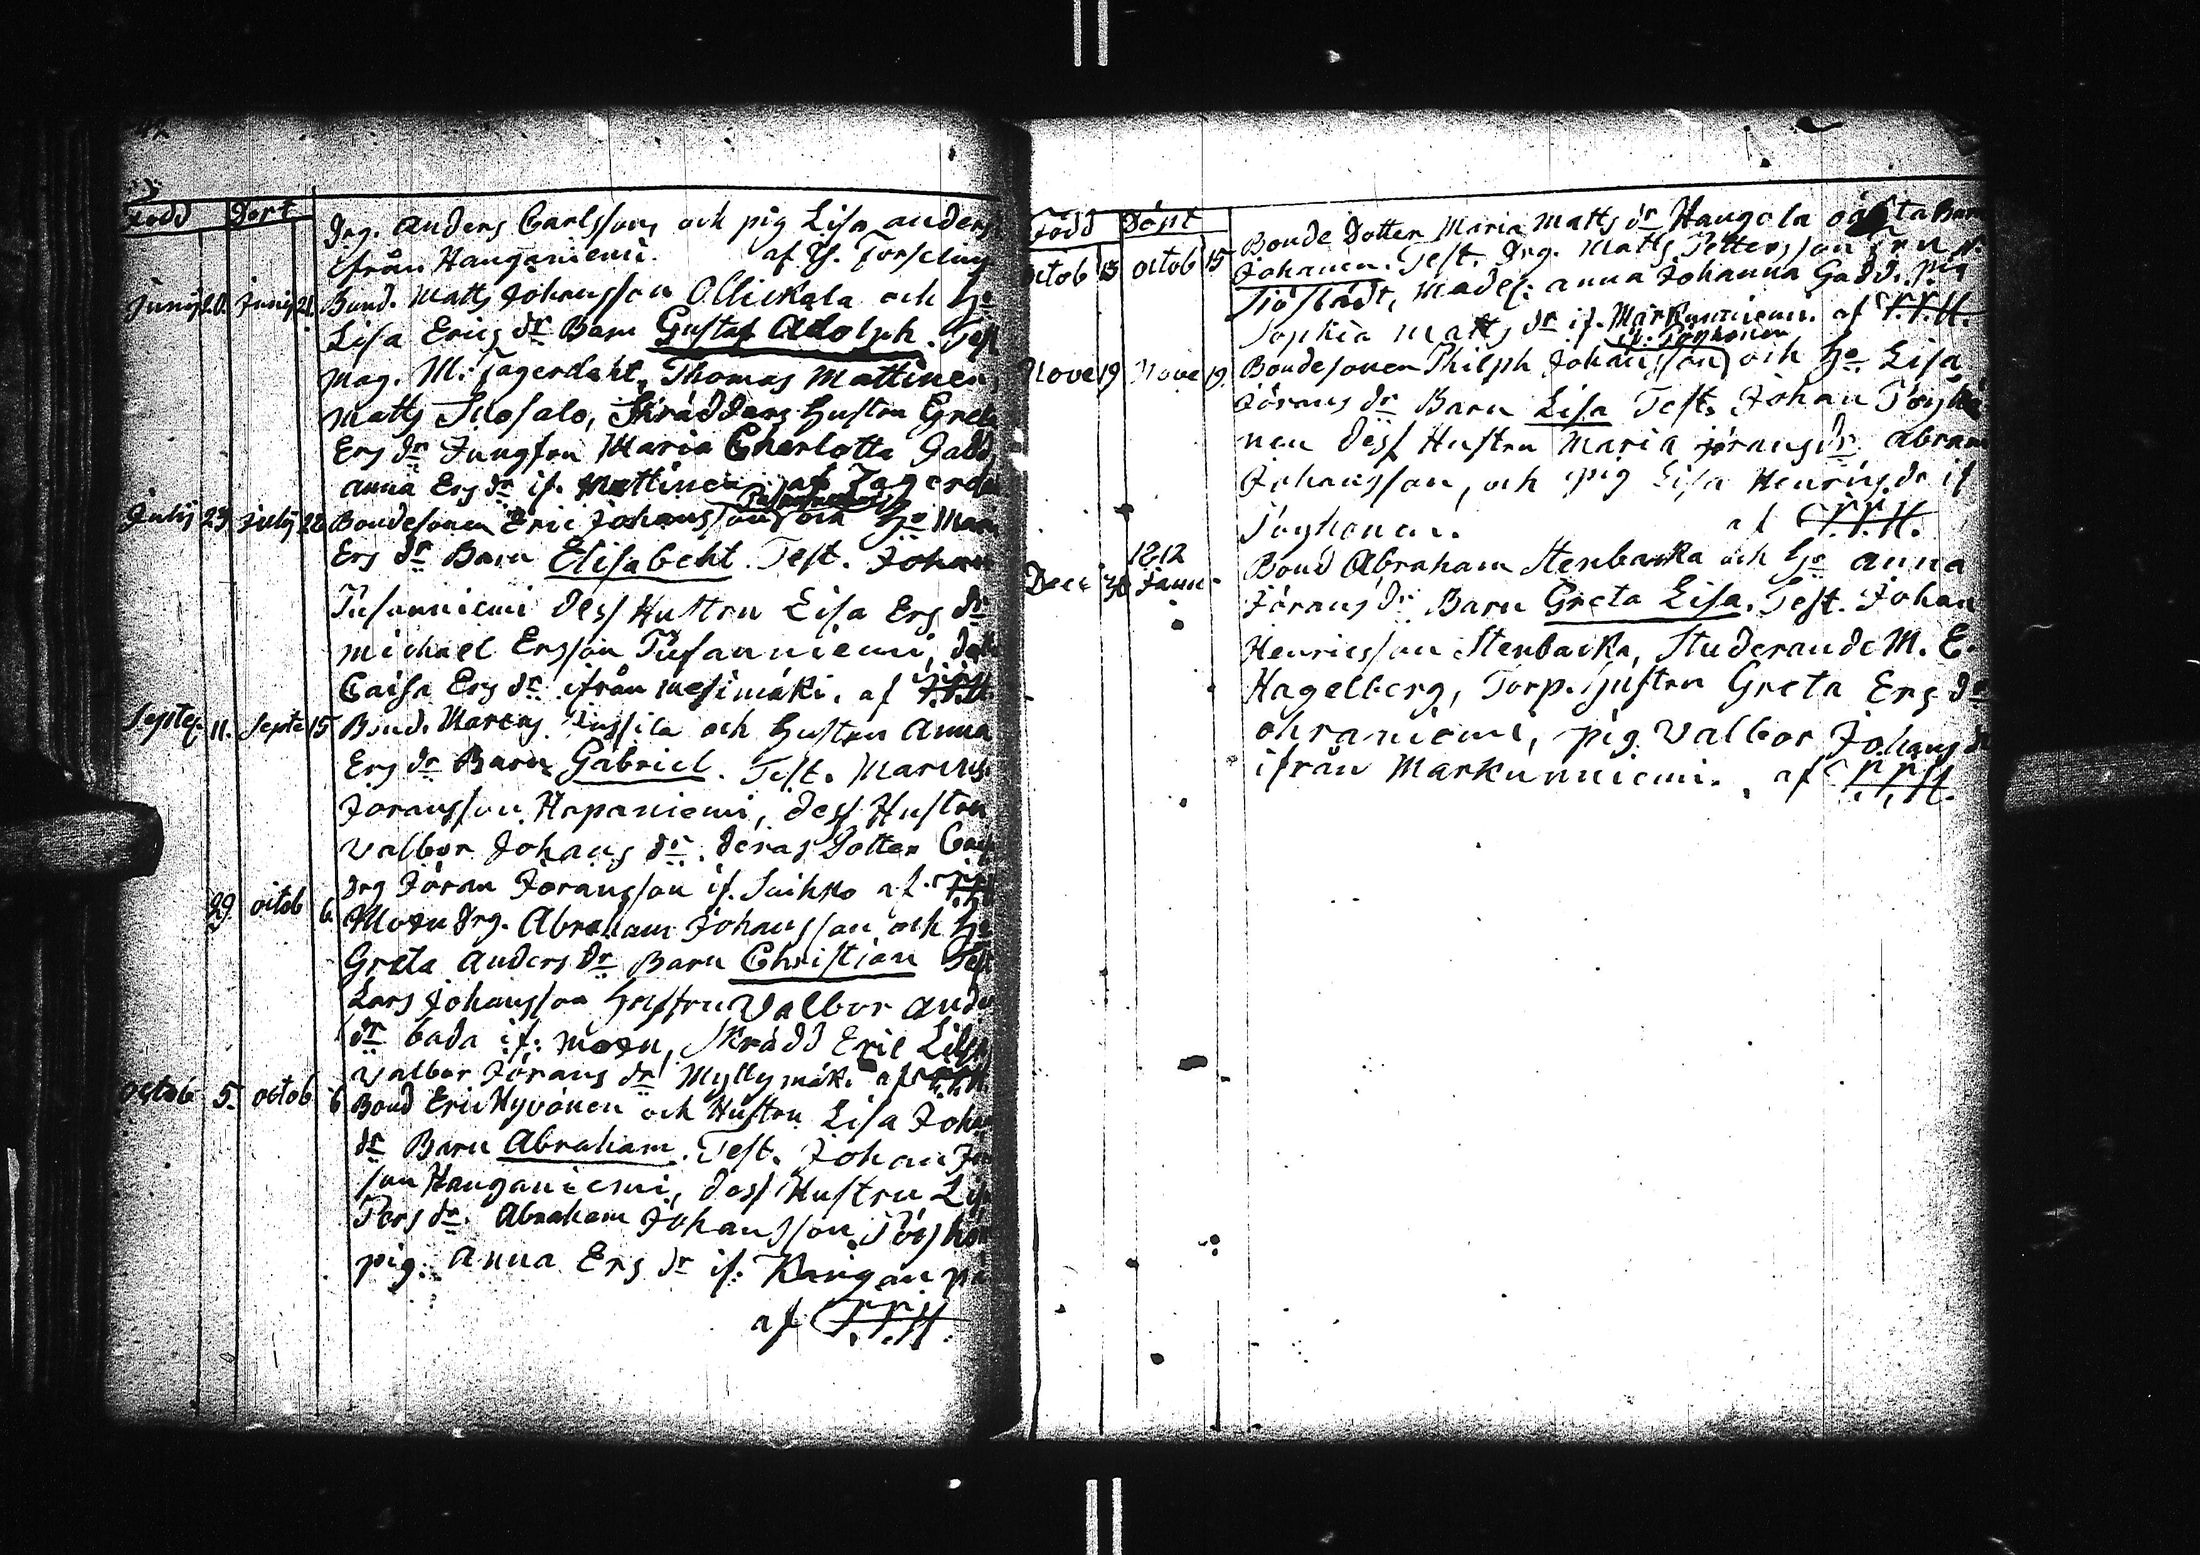 Född Döpt
Drg. Anders Carlsson, och pig Lisa anders
ifrån Hanganiemi. af Th. Forselius
Junij 20. Junij 21. Bond. Matts Johansson Ollickala och Ho
Lisa Erics dr Barn Gustaf Adolph. Test
Mag. M. Fagerdaht, Thomas Mattinen
Matts Suosalo, Skrädders Hustru Greta
Ers dr Jungfru Maria Cherlotta Gadd,
Anna Ers dr if. Mattinen af Fagerda
July 23. July 28 Bondesonen Eric Johansson och Ho Mar
Ers dr Barn Elisabeht. Test. Johan
Tusanniemi dess Hustru Lisa Ers dr
Michael Ersson Tusanniemi,
Caisa Ers dr ifrån Mesimäki. af
Septe. 11. Septe 15 Bond. Marcus och Hustru Anna
Ers dr Barn Gabriel. Test. Marcus
Joransson Hapaniemi, dess Hustru
Valbor Johans dr. deras Dotter
Drg Jöran Joransson if. Suihko af
29. octob 6. Moxu Drg. Abraham Johansson och Ho
Greta Anders dr Barn Christian Test
Lars Johansson Hustru Valbor And
dr bada if: Moxu, Skrädd Eric
Valbor Jörans dr Myllymäki af
octob 5. octob 6 Bond Eric Hyvönen och Hustru Lisa Joha
dr Barn Abraham. Test. Johan
son Hanganiemi, dess Hustru Lis
Pers dr. Abraham Johansson
pig. Anna Ers dr if:
af
Född Döpt
Octob 13 octob 15 Bonde Dotter Maria Matts dr Haugola oäkta Barn
Johannen. Test. Drg. Matts Pettersson
Sjöstadt, Madel: anna Johanna Gadd. pig
Sophia Matts dr if. Markunniemi. af
Nove 19 Nove 19. Bondesonen Philph Johansson och Ho Lisa
Jörans dr Barn Lisa Test. Johan Pöyhö
nen dess Hustru Maria Jörans dr Abram
Johansson, och pig Lisa Henrics dr if
Pöyhonen. af
1812
Dece 30 Janu Bond Abraham Stenbacka och Ho Anna
Jörans dr Barn Greta Lisa. Test. Johan
Henricsson Stenbacka, Studerande M. E.
Hagelberg, Torp. Hustru Greta Ers dr
Ohraniemi, pig Valbor Johans d
ifrån Markunniemi. af